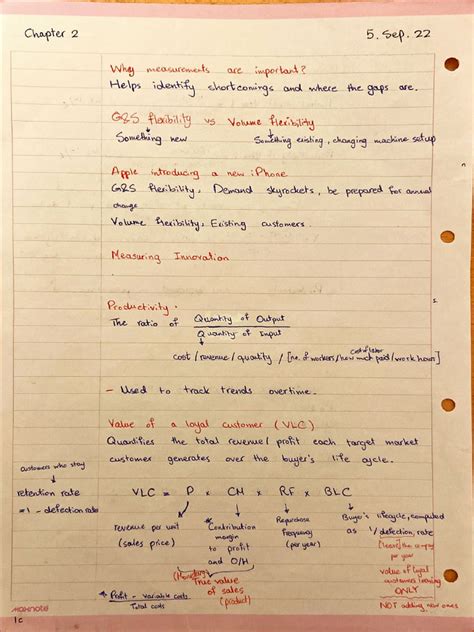 Chapter 2
5. Sep. 22
Why measurements are important?
Helps identify shortcomings and where the gaps are.
G&S flexibility vs Volume flexibility
Something new
Something existing, changing machine setup
Apple introducing a new iPhone
G&S flexibility, Demand skyrockets, be prepared for annual
change
Volume flexibility, Existing customers.
Measuring Innovation
Productivity.
The ratio of Quantity of Output
Quantity of Input
cost of labor
cost/revenue/quantity / [no. of workers/how much paid/work hours]
- Used to track trends overtime.
Value of a loyal customer (VLC)
Quantifies the total revenue/profit each target market
customer generates over the buyer's life cycle.
customers who stay
retention rate
= 1 - defection rate
VLC = P × CM × RF × BLC
revenue per unit
(sales price)
*Contribution
margin
to profit
and O/H
Repurchase
frequency
(per year)
Buyer's lifecycle, computed
as 1/defection rate
per year
True value
of sales
(product)
value of loyal
customers leaving
ONLY
NOT adding new ones
* Profit - variable costs
Total costs
maxnote
1c